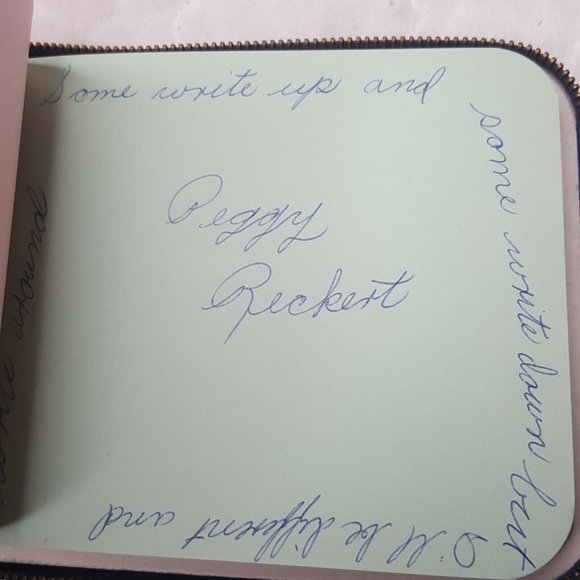 Some write up and
some write down but
I'll be different and
write around
Peggy
Reckert